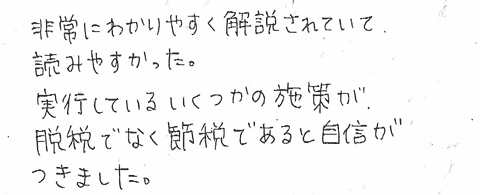 非常にわかりやすく解説されていて.
読みやすかった。
実行しているいくつかの施策が.
脱税でなく節税であると自信が
つきました。